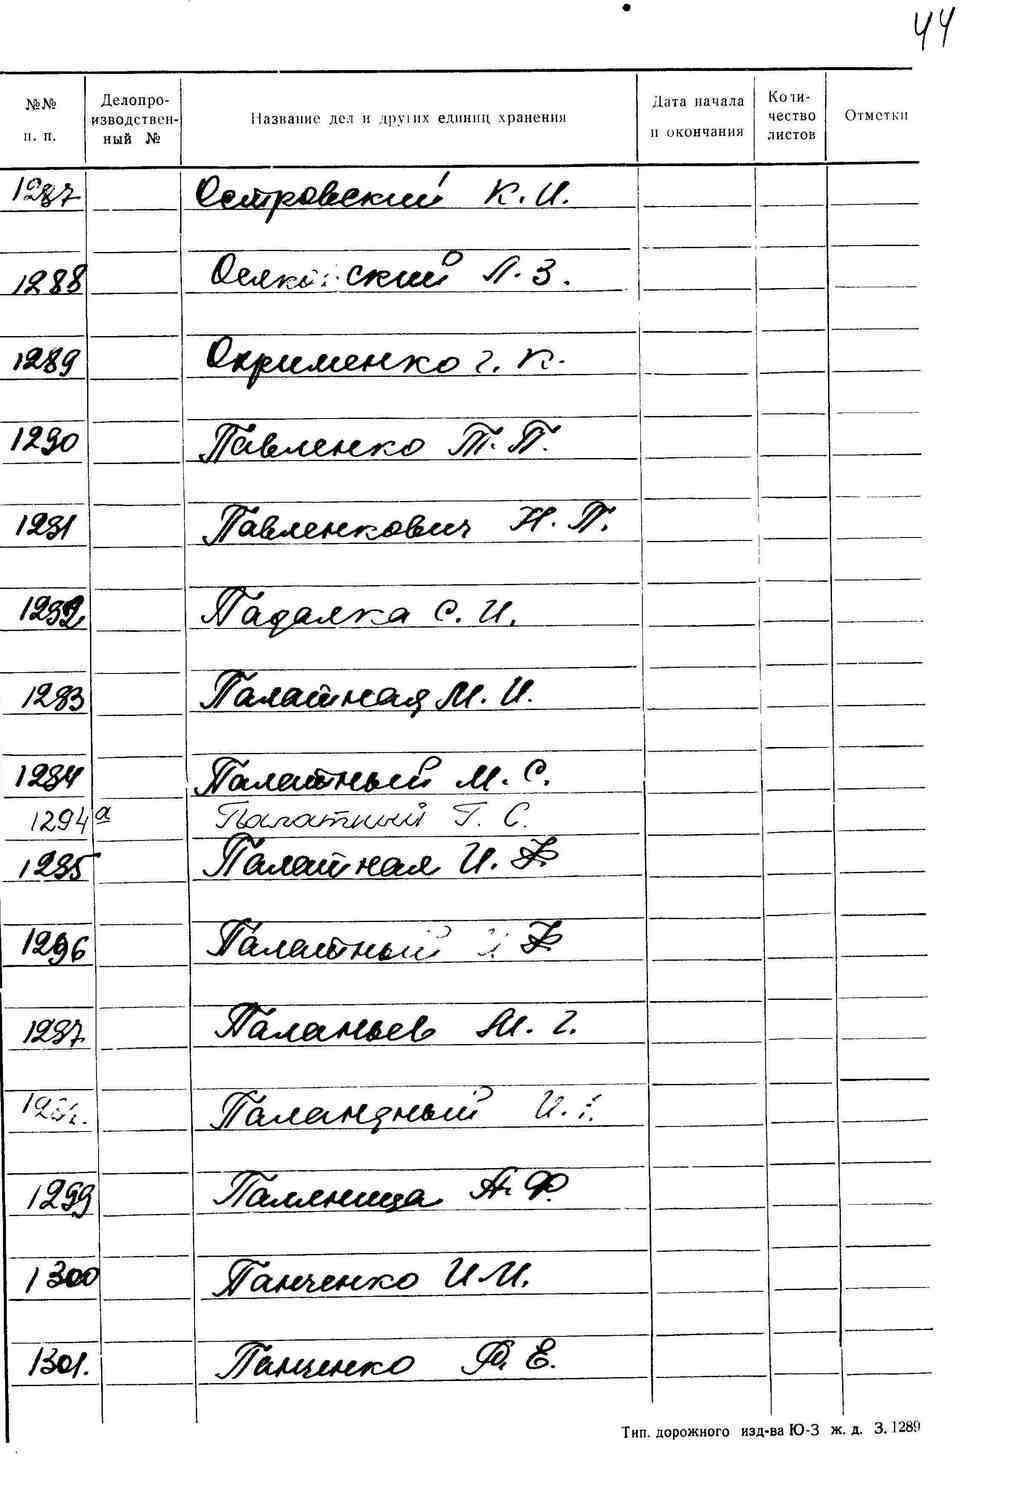 44
№№ п. п. Делопроизводственный № Название дел и других единиц хранения Дата начала и окончания Количество листов Отметки
1287 Островский К. И.
1288 Л. З.
1289 Охрименко Г. К.
1290 Павленко Т. П.
1291 Павленкович Н. П.
1292 Падалка С. И.
1293 Палатная М. И.
1294 Палатный М. С.
1294а Палатный Г. С.
1295 Палатная И. Ф
1296 Палатный И Ф
1297 Паланьев М. Г.
Паландный И.
1299 Паляница А. Ф.
1300 Панченко И М.
1301. Панченко Ф. Е.
Тип. дорожного изд-ва Ю-З ж. д. З. 1289